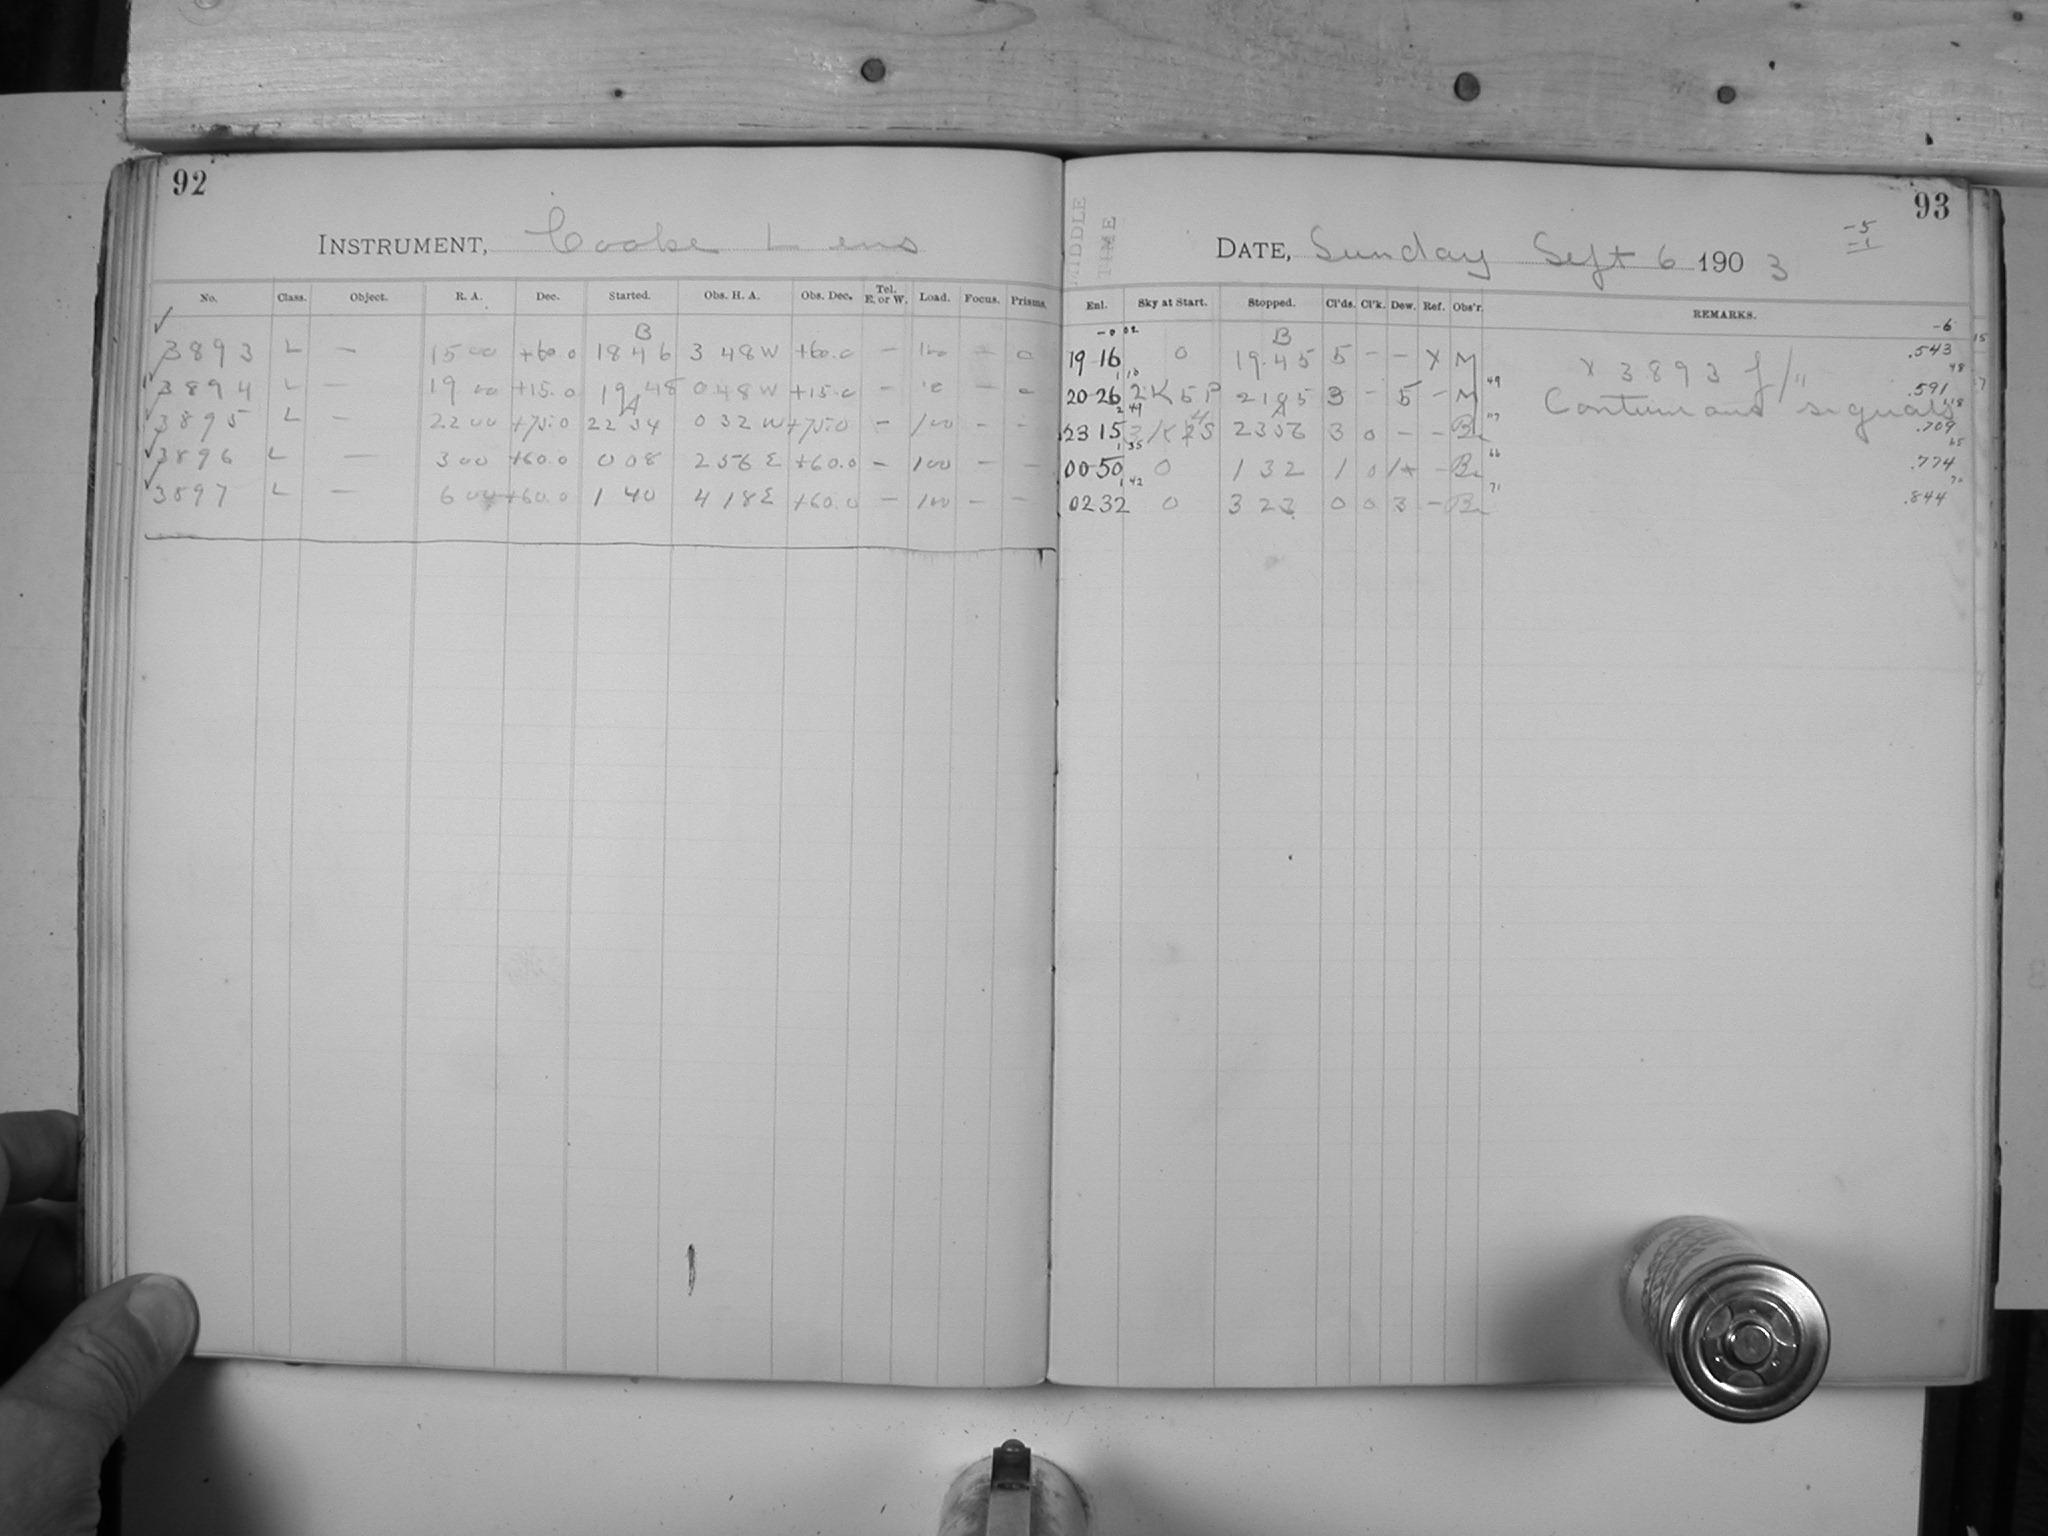 92
INSTRUMENT, Cooke Lens
No. Class. Object. R. A. Dec. Started. Obs. H. A. Obs. Dec. Tel. E. or W. Load. Focus. Prisms.
B
✓ 3893 L — 15 00 +60.0 18 46 3 48 W +60.0 — 100 — 0
✓ 3894 L — 19 00 +15.0 19 48 0 48 W +15.0 — 10 — 0
A
✓ 3895 L — 22 00 +75.0 22 34 0 32 W +75.0 — 100 — —
✓ 3896 L — 3 00 +60.0 0 08 2 56 E +60.0 — 100 — —
✓ 3897 L — 6 00 +60.0 1 40 4 18 E +60.0 — 100 — —
93
MIDDLE TIME
-5
-1
DATE, Sunday Sept 6 1903
Enl. Sky at Start. Stopped. Cl'ds. Cl'k. Dew. Ref. Obs'r. REMARKS.
-0 02 B -6
19 16 0 19.45 5 — — X M x 3893 f/" .543 15
1 10 49 48
20 26 2K5P 21 05 3 — 5 — M Continuous signals .591 7
2 49 4 A 117 118
23 15 2356 3 0 — — Br .709
1 35 66 65
00 50 0 1 32 1 0 1+ — Br .774
1 42 71 70
02 32 0 3 23 0 0 3 — Br .844